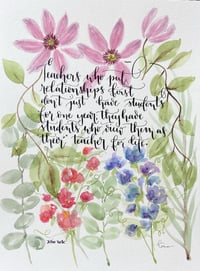 Teachers who put
relationships first
don't just have students
for one year, they have
students who view them as
"their" teacher for life.